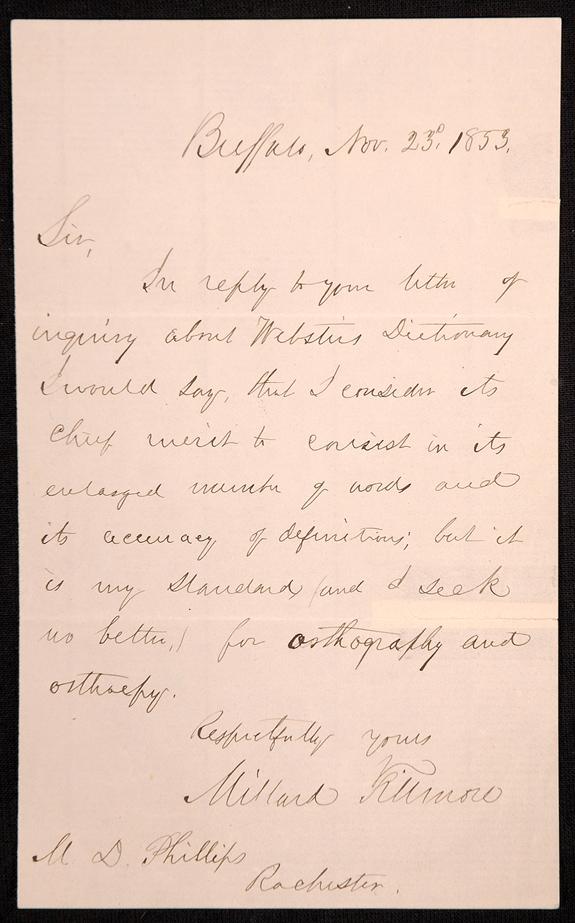 Buffalo, Nov. 23d. 1853.
Sir,
In reply to your letter of
inquiry about Websters Dictionary
I would say, that I consider its
chief merit to consist in its
enlarged number of words and
its accuracy of definitions; but it
is my standard, (and I seek
no better,) for orthography and
orthoepy.
Respectfully yours
Millard Fillmore
M. D. Phillips
Rochester.